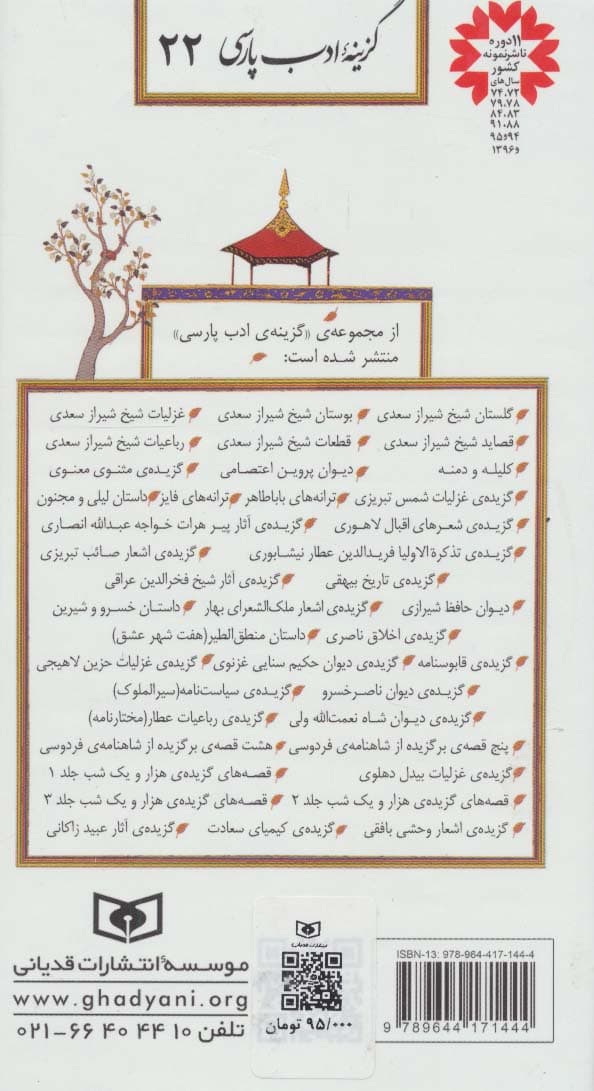 گزینهٔ ادب پارسی ۲۲
۱۱دوره
ناشرنمونه
کشور
سال‌های
۷۴،۷۲
۷۹،۷۸
۸۴،۸۳
۹۱،۸۸
۹۴و۹۵
و۱۳۹۶
از مجموعه‌ی «گزینه‌ی ادب پارسی»
منتشر شده است:
گلستان شیخ شیراز سعدی بوستان شیخ شیراز سعدی غزلیات شیخ شیراز سعدی
قصاید شیخ شیراز سعدی قطعات شیخ شیراز سعدی رباعیات شیخ شیراز سعدی
کلیله و دمنه دیـوان پرویـن اعتصامی گزیـده‌ی مثنـوی معنـوی
گزیده‌ی غزلیات شمس تبریزی ترانه‌های باباطاهر ترانه‌های فایز داستان لیلی و مجنون
گزیـده‌ی شعـرهای اقبال لاهـوری گزیـده‌ی آثار پیـر هرات خواجه عبدالله انصاری
گزیـده‌ی تذکرةالاولیا فریـدالدین عطار نیشابوری گزیده‌ی اشعار صائب تبریزی
گزیده‌ی تاریخ بیهقی گزیده‌ی آثار شیخ فخرالدین عراقی
دیـوان حافظ شیرازی گزیده‌ی اشعار ملک‌الشعرای بهار داستـان خسرو و شیرین
گزیده‌ی اخلاق ناصری داستان منطق‌الطیر(هفت شهر عشق)
گزیده‌ی قابوسنامه گزیده‌ی دیوان حکیم سنایی غزنوی گزیده‌ی غزلیات حزین لاهیجی
گزیـده‌ی دیوان ناصرخسرو گزیـده‌ی سیاست‌نامه(سیرالملوک)
گزیده‌ی دیـوان شاه نعمت‌الله ولی گزیده‌ی رباعیات عطار(مختارنامه)
پنج قصه‌ی برگزیده از شاهنامه‌ی فردوسی هشت قصه‌ی برگزیده از شاهنامه‌ی فردوسی
گزیده‌ی غزلیات بیدل دهلوی قصـه‌های گزیده‌ی هزار و یک شب جلد ۱
قصه‌های گزیده‌ی هزار و یک شب جلد ۲ قصـه‌های گزیده‌ی هزار و یک شب جلد ۳
گزیده‌ی اشعار وحشی بافقی گزیده‌ی کیمیای سعادت گزیده‌ی آثار عبید زاکانی
موسسهٔ انتشارات قدیانی
www.ghadyani.org
تلفن ۱۰ ۴۴ ۴۰ ۶۶-۰۲۱
انتشارات قدیانی
۹۵/۰۰۰ تومان
ISBN-13: 978-964-417-144-4
9 789644 171444